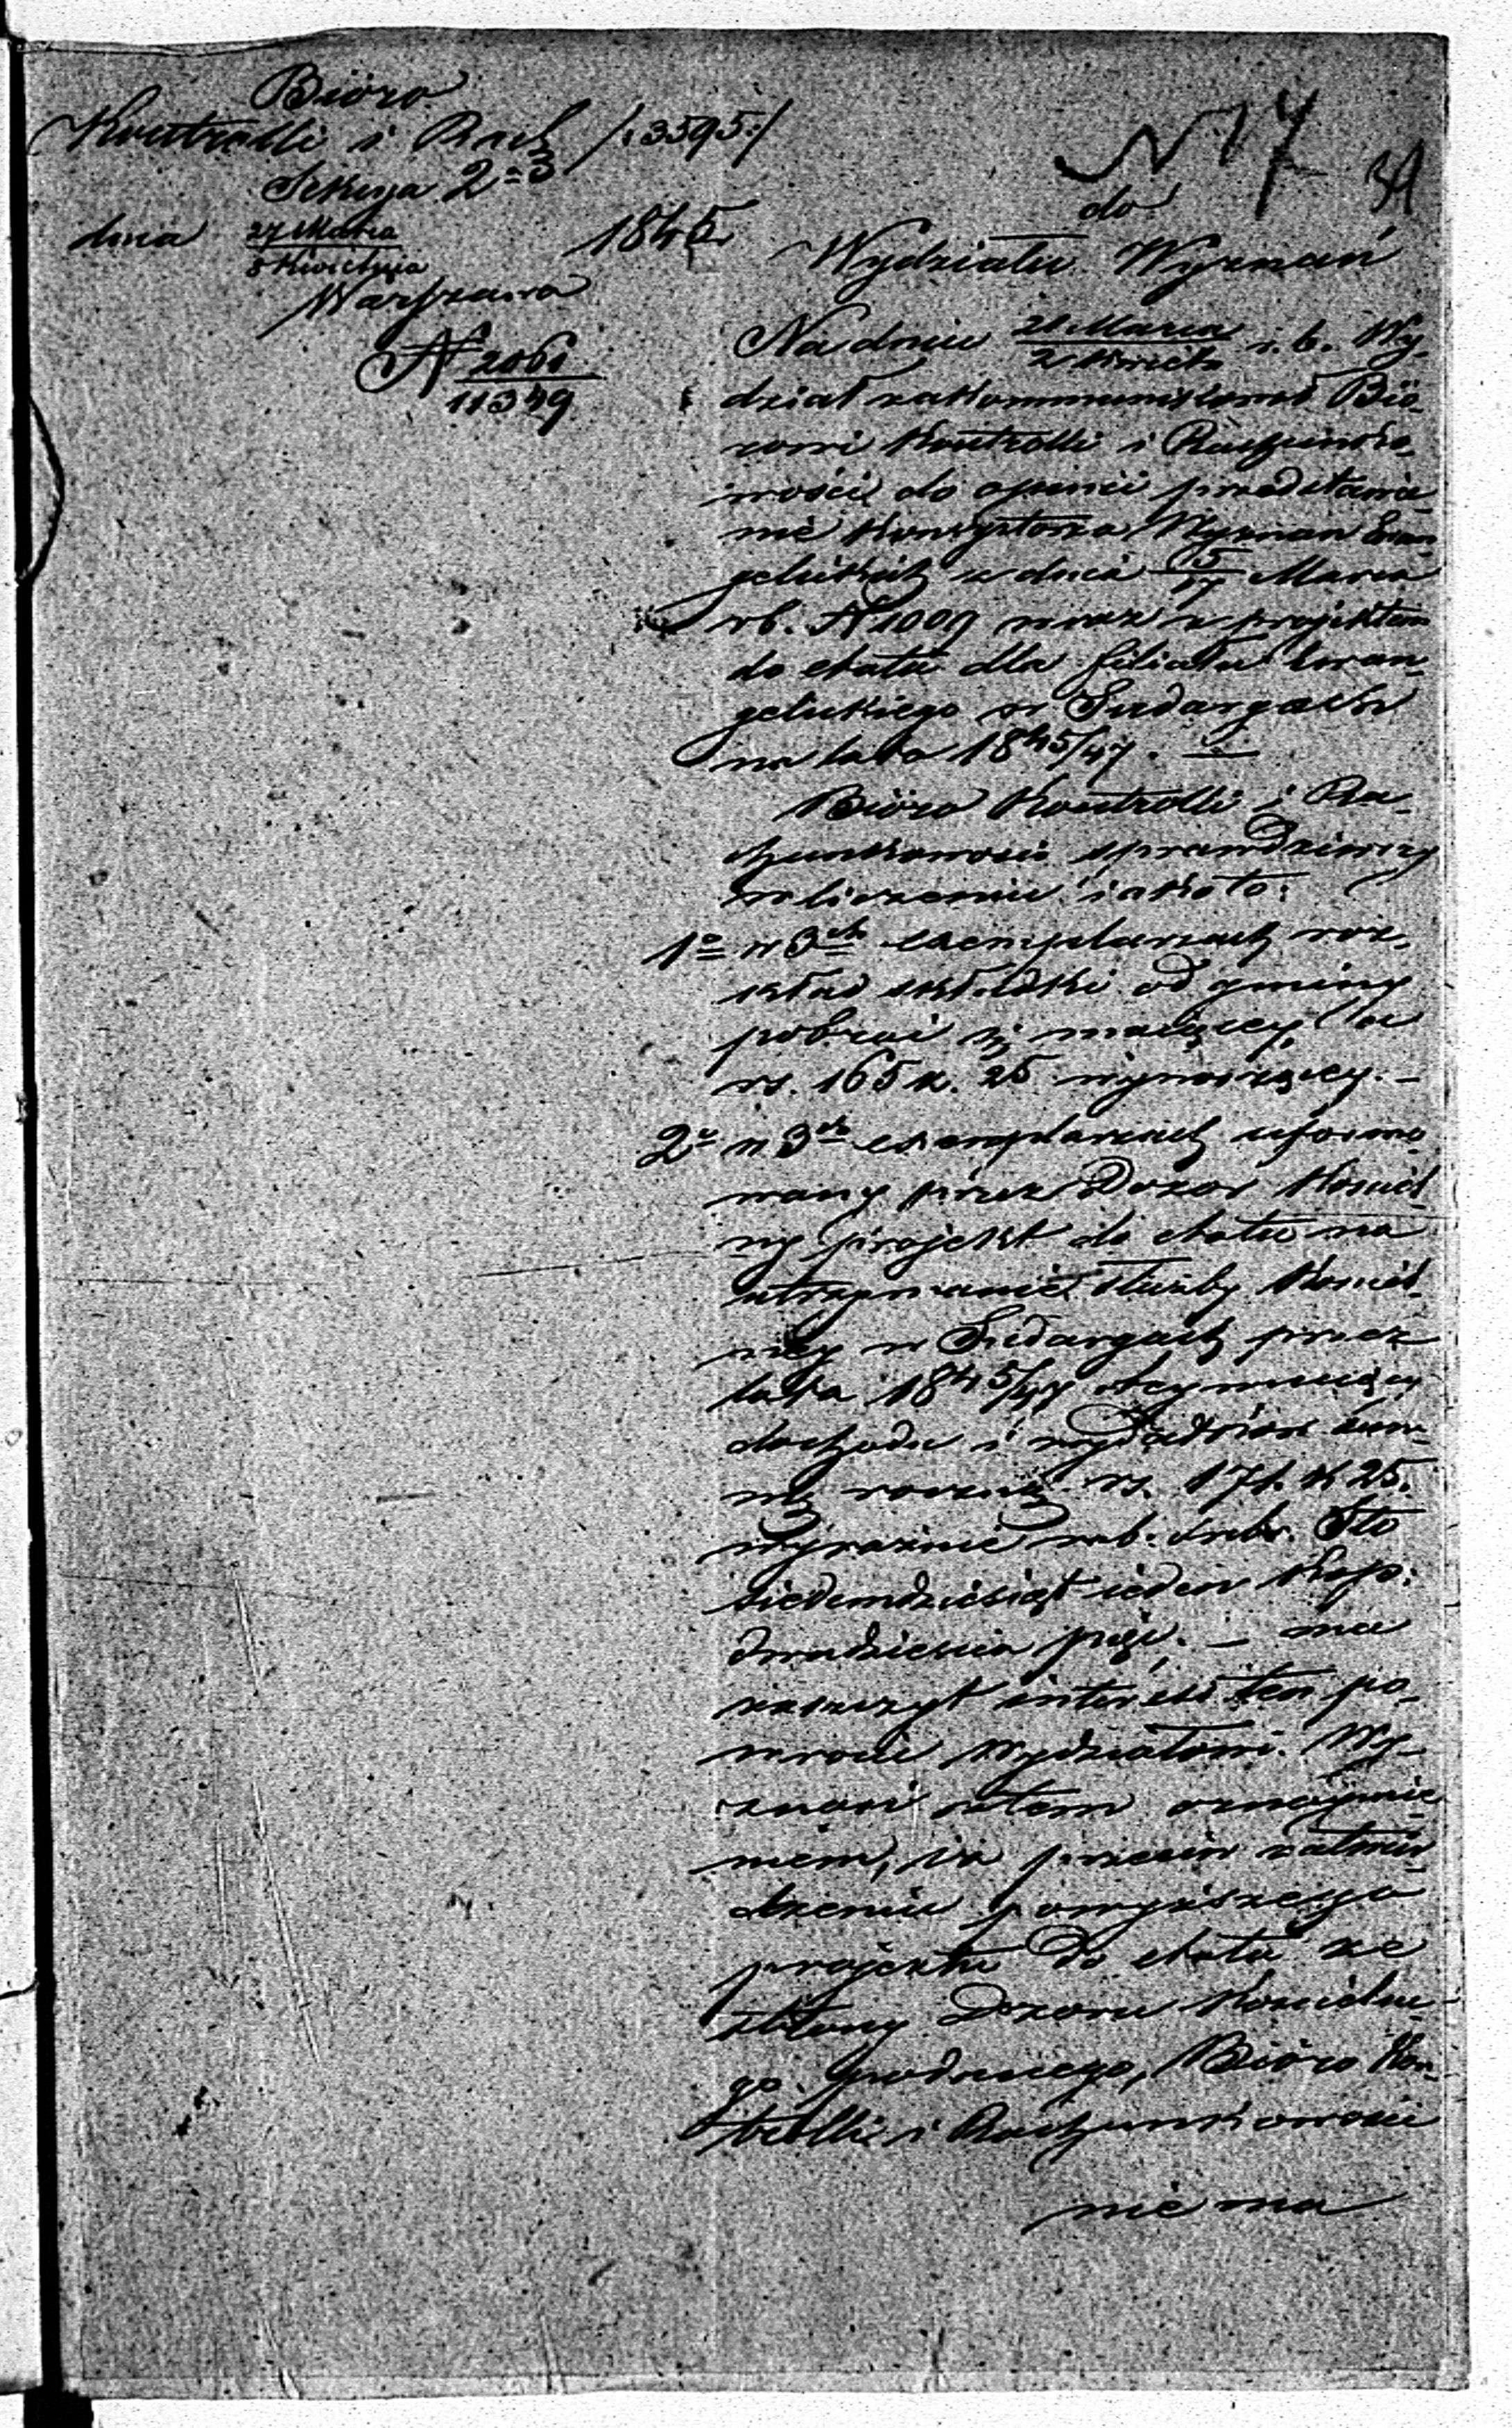 Bióro
Kontrolli i Rach /:3595:/
Sekcya 2ª
dnia 27 Marca / 8 Kwietnia 1845
Warszawa
N 2060 / 11349
N 17
34
do
Wydziału Wyznań
Na dniu 21 Marca / 2 Kwiet: r. b. Wy-
dział zakommunikował Bió-
rowi Kontrolli i Rachunko-
wości do opinii przedstawie-
nie Konsystorza Wyznań Ewan-
gelickich z dnia 15 Marca
rb. N 1009 wraz z projektem
do etatu dla filiału Ewan-
gelickiego w Sudargach
na lata 1845/47. —
Bióro Kontrolli i Ra-
chunkowości sprawdziwszy
w liczeniu iako to:
1º w 3ch exemplarzach roz-
kład składki od gminy
pobrać się maiącey, a
rs. 165 k. 25 wynoszącey. —
2º w 3ch exemplarzach uformo-
wany przez Dozór Kościel-
ny projekt do etatu na
utrzymanie służby Kościel-
ney w Sudargach przez
lata 1845/47 obeymuiący
dochodu i wydatków sum-
mę roczną rs. 171. k 25.
wyraźnie rub. sreb. Sto
siedemdziesiąt ieden kop:
dwadzieścia pięć. — ma
zaszczyt interes ten po-
wrócić Wydziałowi Wy-
znań z tem oznaymie-
niem, że przeciw zatwier-
dzeniu powyższego
projektu do etatu ze
strony Dozoru Kościelne-
go podanego, Bióro Kon-
trolli i Rachunkowości
nie ma